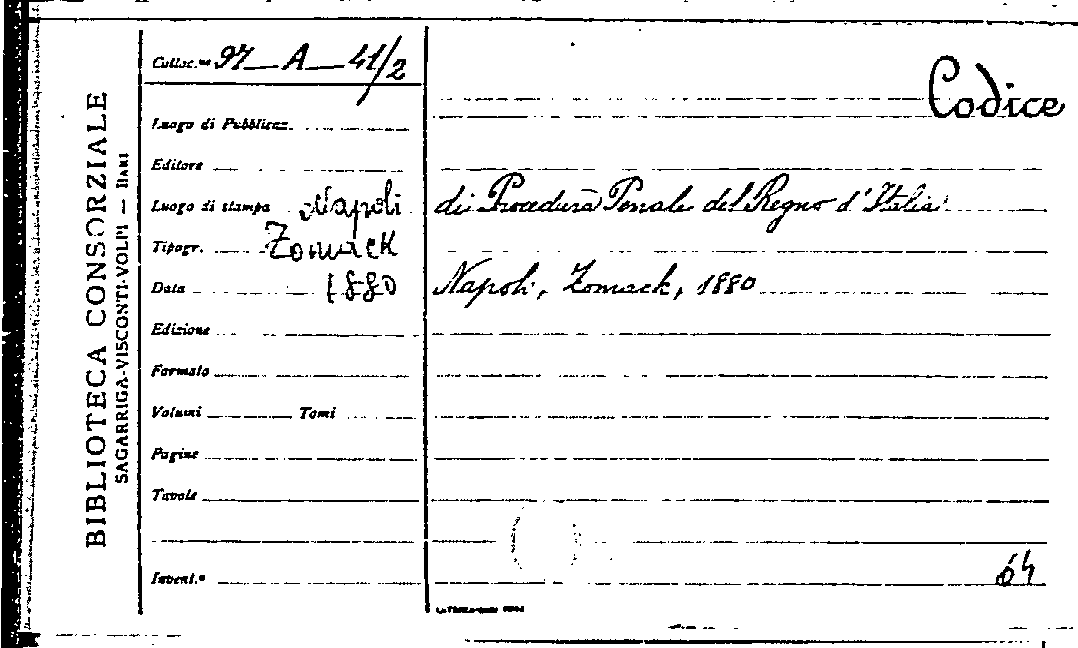 BIBLIOTECA CONSORZIALE
SAGARRIGA-VISCONTI-VOLPI — BARI
Colloc.ne 97 A 41/2
Luogo di Pubblicaz.
Editore
Luogo di stampa Napoli
Tipogr. Zomack
Data 1880
Edizione
Formato
Volumi Tomi
Pagine
Tavole
Invent.º
Codice
di Procedura Penale del Regno d'Italia
Napoli, Zomack, 1880
64